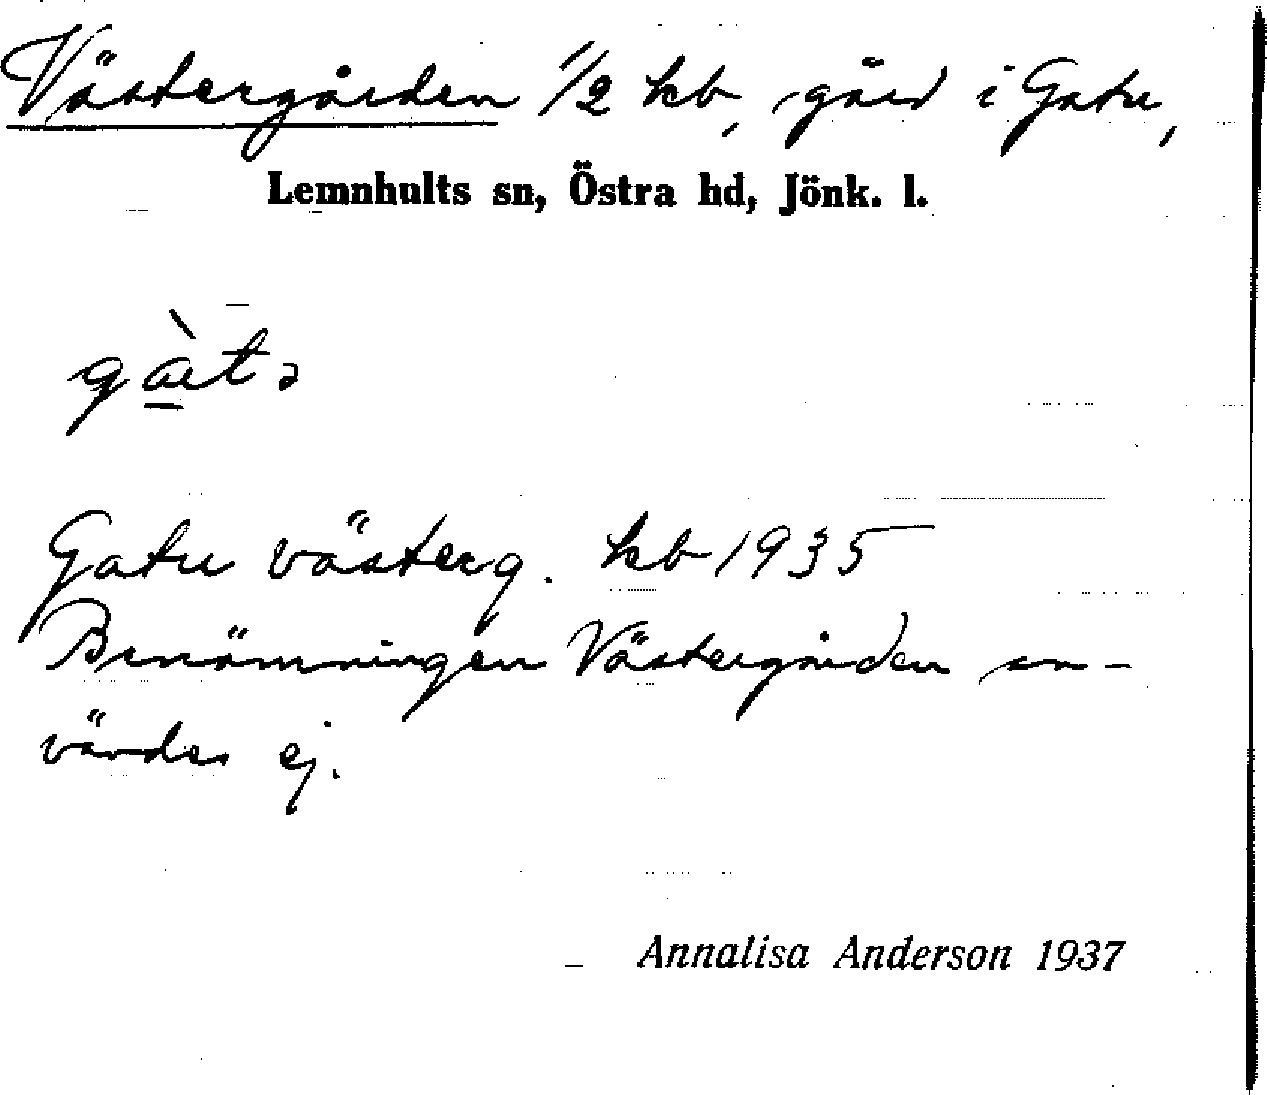 Västergården 1/2 kb, gård i Gatu,
Lemnhults sn, Östra hd, Jönk. l.
gà̱tə
Gatu västerg. kb 1935
Benämningen Västergården an-
vändes ej.
Annalisa Anderson 1937